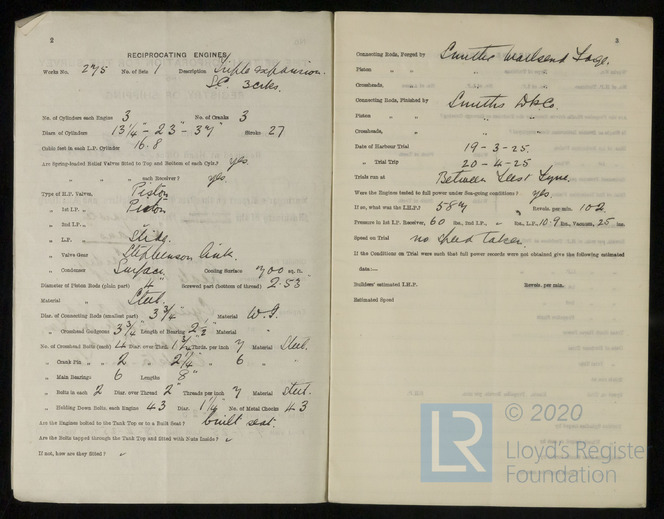 2
RECIPROCATING ENGINES.
Works No. 275 No. of Sets 1 Description Triple Expansion.
S.C. 3 crks.
No. of Cylinders each Engine 3 No. of Cranks 3
Diars of Cylinders 13¼" - 23 - 37" Stroke 27
Cubic feet in each L.P. Cylinder 16.8
Are Spring-loaded Relief Valves fitted to Top and Bottom of each Cylr.? yes.
" " " each Receiver? yes.
Type of H.P. Valves, Piston
" 1st I.P. " Piston
" 2nd I.P. "
" L.P. " Slide.
" Valve Gear Stephenson Link.
" Condenser Surface. Cooling Surface 700 sq. ft.
Diameter of Piston Rods (plain part) 4" Screwed part (bottom of thread) 2.53"
Material " Steel.
Diar. of Connecting Rods (smallest part) 3¾" Material W.I.
" Crosshead Gudgeons 3¾" Length of Bearing Material "
No. of Crosshead Bolts (each) 4 Diar. over Thrd. 1¾" Thrds. per inch 7 Material Steel.
" Crank Pin " " 2 " 2¼" " 6 "
" Main Bearings 6 Lengths 8"
" Bolts in each 2 Diar. over Thread 2" Threads per inch 7 Material Steel.
" Holding Down Bolts, each Engine 43 Diar. No. of Metal Chocks 43
Are the Engines bolted to the Tank Top or to a Built Seat? built seat.
Are the Bolts tapped through the Tank Top and fitted with Nuts Inside? ✓
If not, how are they fitted? ✓
3
Connecting Rods, Forged by Smiths Wallsend Forge.
Piston " " "
Crossheads, " "
Connecting Rods, Finished by Smiths Dk Co.
Piston " " "
Crossheads, " "
Date of Harbour Trial 19-3-25.
" Trial Trip 20-4-25
Trials run at Between Tees & Tyne.
Were the Engines tested to full power under Sea-going conditions? yes.
If so, what was the I.H.P.? 587 Revols. per min. 102.
Pressure in 1st I.P. Receiver, 60 lbs., 2nd I.P., " lbs., L.P., 10.9 lbs., Vacuum, 25 ins.
Speed on Trial no speed taken.
If the Conditions on Trial were such that full power records were not obtained give the following estimated
data:—
Builders' estimated I.H.P. Revols. per min.
Estimated Speed
LR
© 2020
Lloyd's Register
Foundation